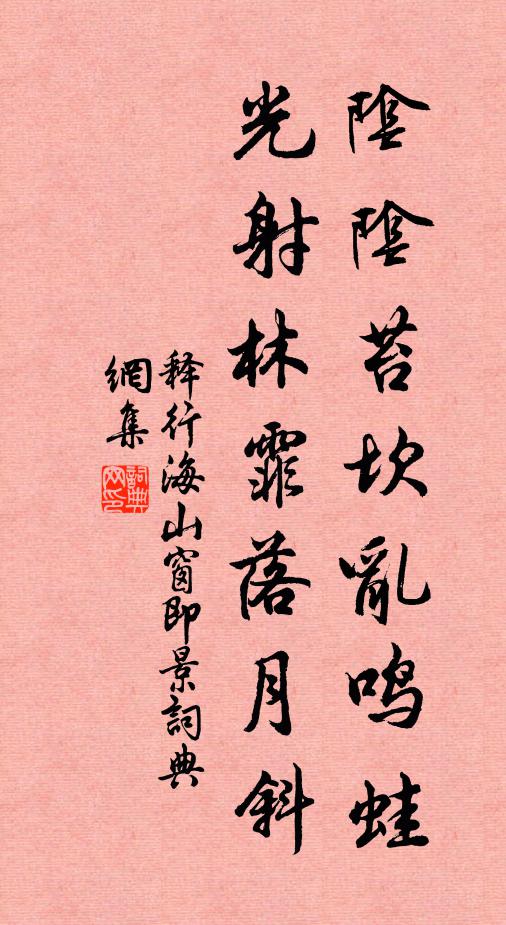 陰陰苔坎亂鳴蛙
光射林霏落月斜
释行海山窗即景詞典
網集
詞典網印